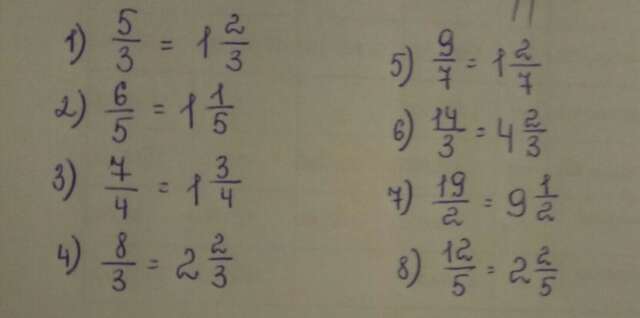 1) 5/3 = 1 2/3
2) 6/5 = 1 1/5
3) 7/4 = 1 3/4
4) 8/3 = 2 2/3
5) 9/7 = 1 2/7
6) 14/3 = 4 2/3
7) 19/2 = 9 1/2
8) 12/5 = 2 2/5